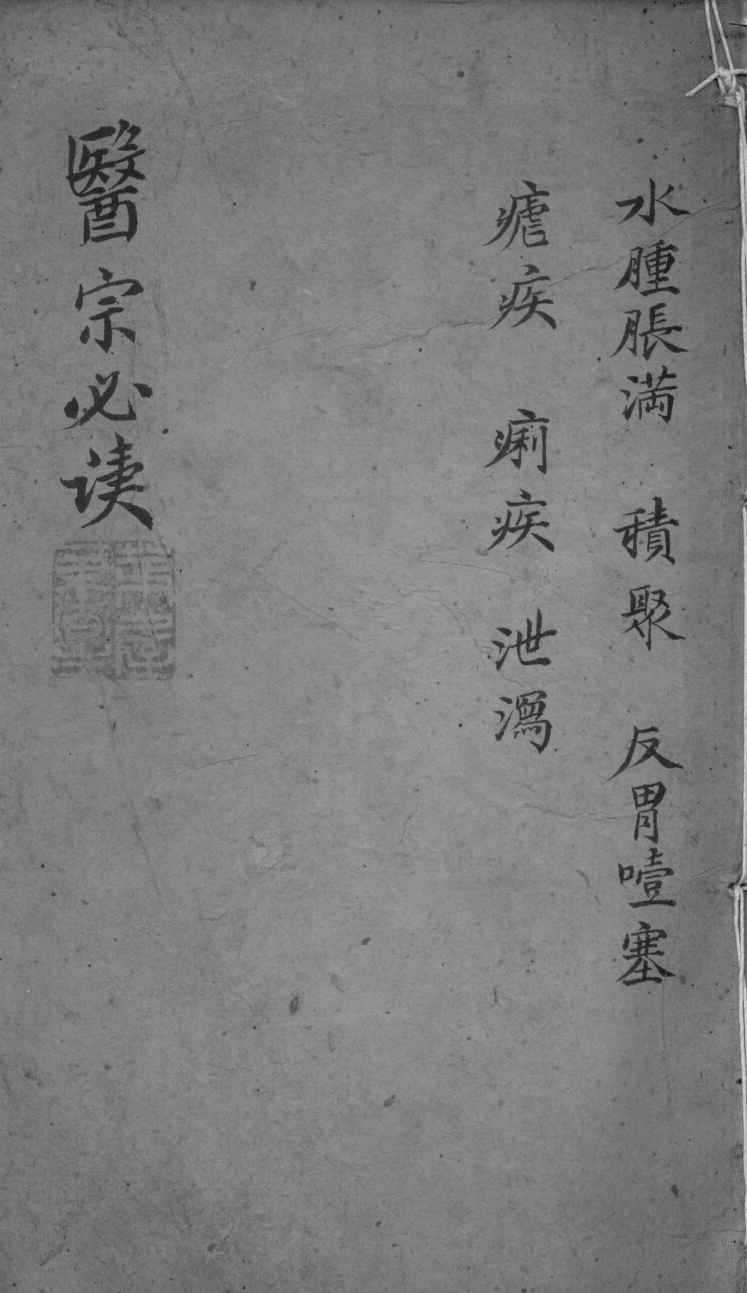 水腫脹滿 積聚 反胃噎塞
瘧疾 痢疾 泄瀉
醫宗必讀